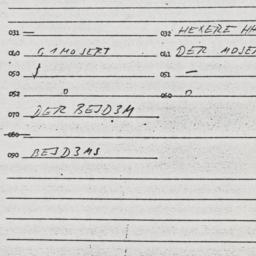 031 — 032 HEXERE HH
040 G 1 MOSERT 041 DER MOSER
050 051 —
052 0 060 0
070 DER BEJD3M
080
090 BEJD3MS